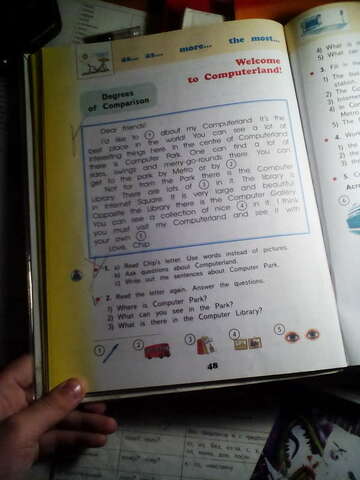 as... as... more... the most...
Welcome
to Computerland!
Degrees
of Comparison
Dear friends!
I'd like to 1 about my Computerland. It's the
best place in the world! You can see a lot of
interesting things here. In the centre of Computerland
there is Computer Park. One can find a lot of
rides, swings and merry-go-rounds there. You can
get to the park by Metro or by 2.
Not far from the Park there is the Computer
Library. There are lots of 3 in it. The library is
in Internet Square. It is very large and beautiful.
Opposite the Library there is the Computer Gallery.
You can see a collection of nice 4 in it. I think
you must visit my Computerland and see it with
your own 5.
Love, Chip
1. a) Read Chip's letter. Use words instead of pictures.
b) Ask questions about Computerland.
c) Write out the sentences about Computer Park.
2. Read the letter again. Answer the questions.
1) Where is Computer Park?
2) What can you see in the Park?
3) What is there in the Computer Library?
1 2 3 4 5
48